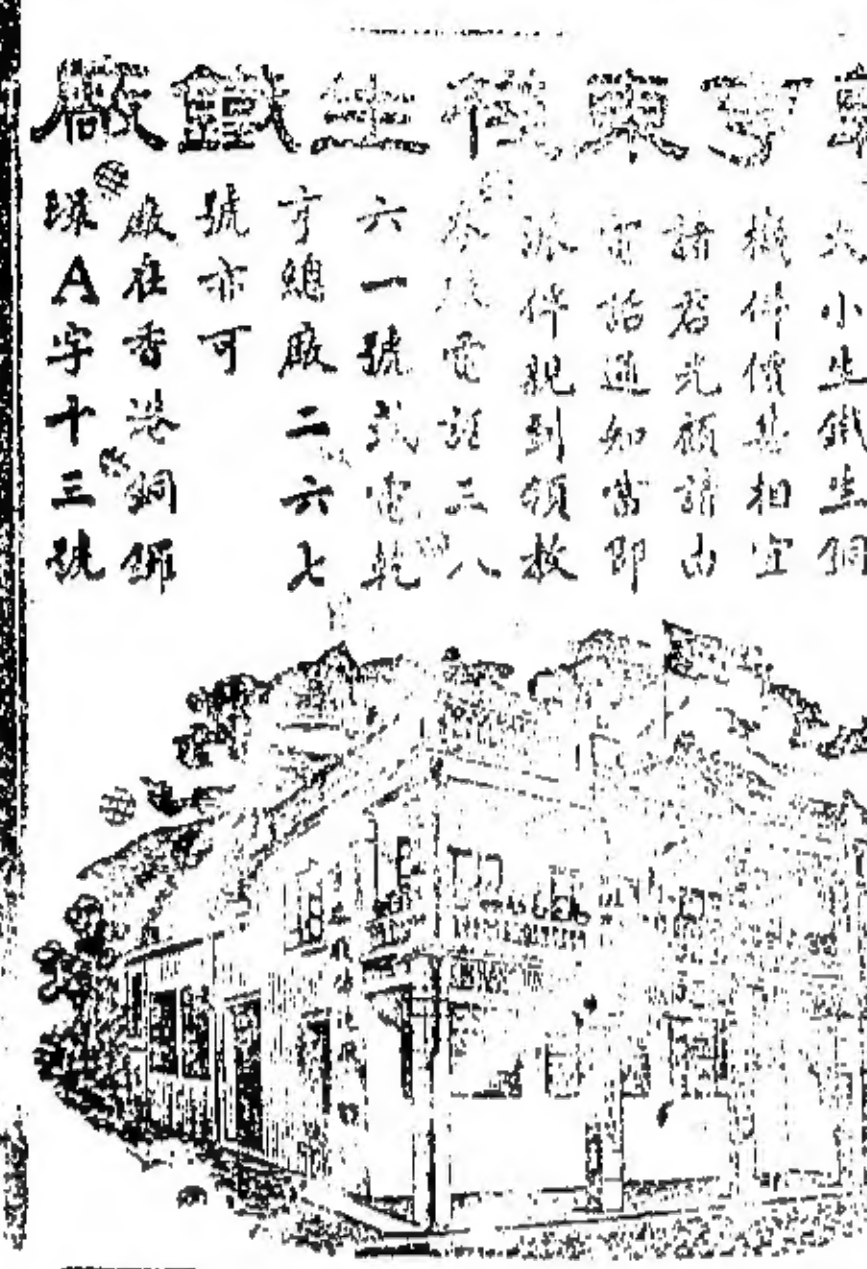 乾亨東種生鐵廠
大小生鐵生銅
機件價甚相宜
諸君光顧請由
電話通知當即
派伴親到領教
本廠電話三八
六一號或電乾
亨總廠二六七
號亦可
廠在香港銅鑼
環A字十三號